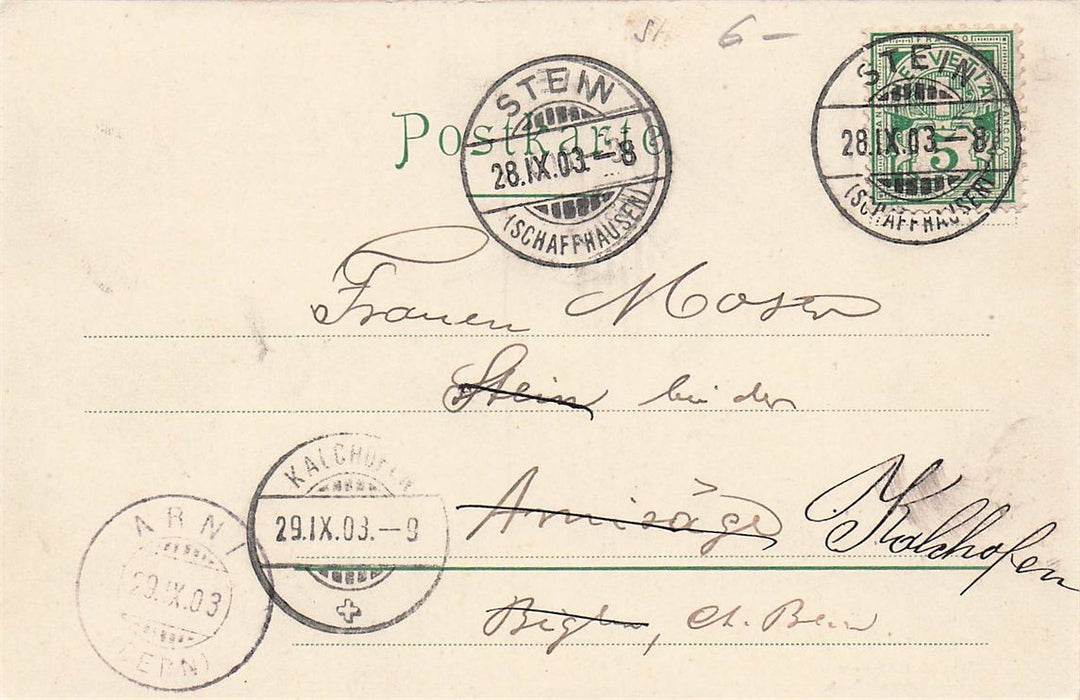 6 –
Postkarte
STEIN
28.IX.03.–8
(SCHAFFHAUSEN)
STEIN
28.IX.03.–8
(SCHAFFHAUSEN)
FRANCO
HELVETIA
5
Frauen Moser
Stein bei der
Arnisäge Kalchofen
Biglen, Ct. Bern
KALCHOFEN
29.IX.03.–9
ARNI
29.IX.03
(BERN)